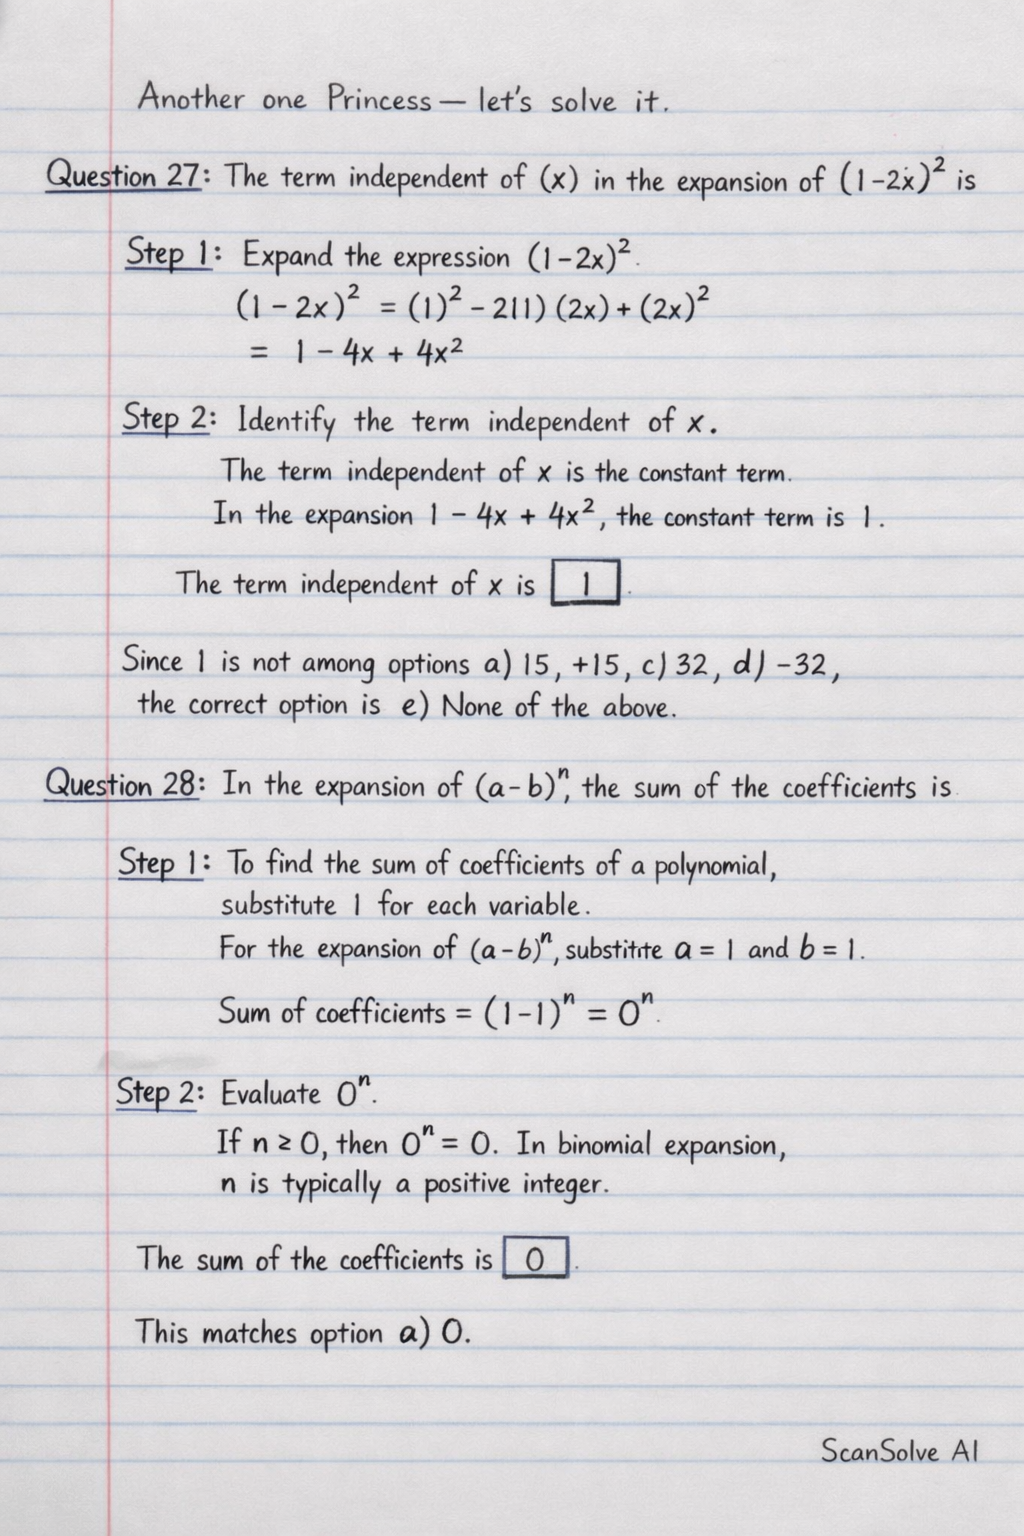 Another one Princess — let's solve it.
Question 27: The term independent of (x) in the expansion of (1-2x)² is
Step 1: Expand the expression (1-2x)².
(1-2x)² = (1)² - 2(1)(2x) + (2x)²
= 1 - 4x + 4x²
Step 2: Identify the term independent of x.
The term independent of x is the constant term.
In the expansion 1 - 4x + 4x², the constant term is 1.
The term independent of x is 1.
Since 1 is not among options a) 15, +15, c) 32, d) -32,
the correct option is e) None of the above.
Question 28: In the expansion of (a-b)ⁿ, the sum of the coefficients is
Step 1: To find the sum of coefficients of a polynomial,
substitute 1 for each variable.
For the expansion of (a-b)ⁿ, substitite a = 1 and b = 1.
Sum of coefficients = (1-1)ⁿ = 0ⁿ.
Step 2: Evaluate 0ⁿ.
If n ≥ 0, then 0ⁿ = 0. In binomial expansion,
n is typically a positive integer.
The sum of the coefficients is 0.
This matches option a) 0.
ScanSolve AI